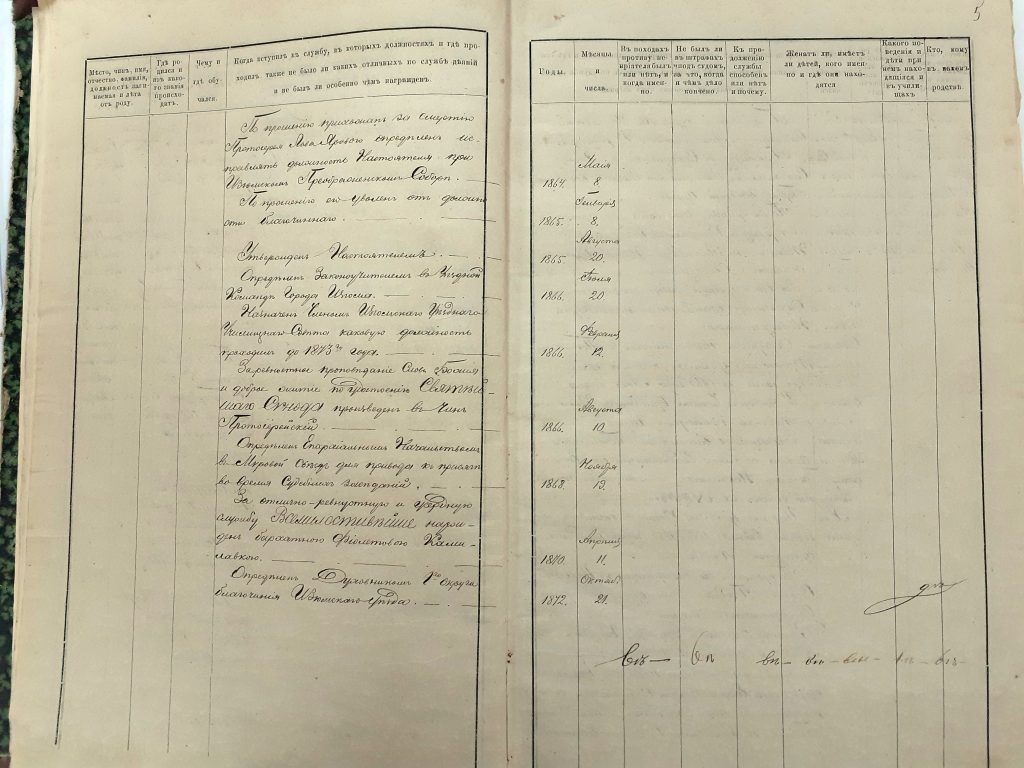 5
Мѣсто, чинъ, имя,
отчество, фамилія,
должность занимаемая и лѣта
отъ роду.
Гдѣ родился и
изъ какого званія
происходитъ.
Чему и
гдѣ обучался.
Когда вступилъ въ службу, въ которыхъ должностяхъ и гдѣ проходилъ, также не было ли какихъ отличныхъ по службѣ дѣяній
и не былъ ли особенно чѣмъ награжденъ.
Годы.
Мѣсяцы
и
числа.
Въ походахъ
противу непріятеля былъ
или нѣтъ, и
когда именно.
Не былъ ли
въ штрафахъ
подъ судомъ,
за что, когда
и чѣмъ дѣло
кончено.
Къ продолженію
службы
способенъ
или нѣтъ
и почему.
Женатъ ли, имѣетъ
ли дѣтей, кого именно и гдѣ они находятся
Какого поведенія и
дѣти при
немъ находящіяся и
въ училищахъ
Кто, кому
въ какомъ
родствѣ.
По прошенію прихожанъ за смертію
Протоіерея Льва опредѣленъ исправлять должность Настоятеля при
Изюмскомъ Преображенскомъ Соборѣ.
1864. Маія 8.
По прошенію его уволенъ отъ должности благочиннаго.
1865. Генваря 8.
Утвержденъ Настоятелемъ.
1865. Августа 20.
Опредѣленъ Законоучителемъ въ Уѣздной
Командѣ города Изюма.
1866. Іюля 20.
Назначенъ Членомъ Изюмскаго Уѣзднаго
Училищнаго Совѣта каковую должность
проходилъ до 1873го года.
1866. Февраля 12.
За ревностное проповѣданіе Слова Божія
и доброе житіе по удостоенію Святѣйшаго Сѵнода произведенъ въ чинъ
Протоіерейскій.
1866. Августа 10.
Опредѣленъ Епархіальнымъ Начальствомъ
въ Мировой Съѣздъ для привода къ присягѣ
во время Судебныхъ засѣданій.
1868. Ноября 13.
За отлично-ревностную и усердную
службу Всемилостивѣйше награжденъ бархатною фіолетовою Камилавкою.
1870. Апрѣля 11.
Опредѣленъ Духовникомъ 1го Округа
благочинія Изюмскаго Уѣзда.
1872. Октяб. 21.